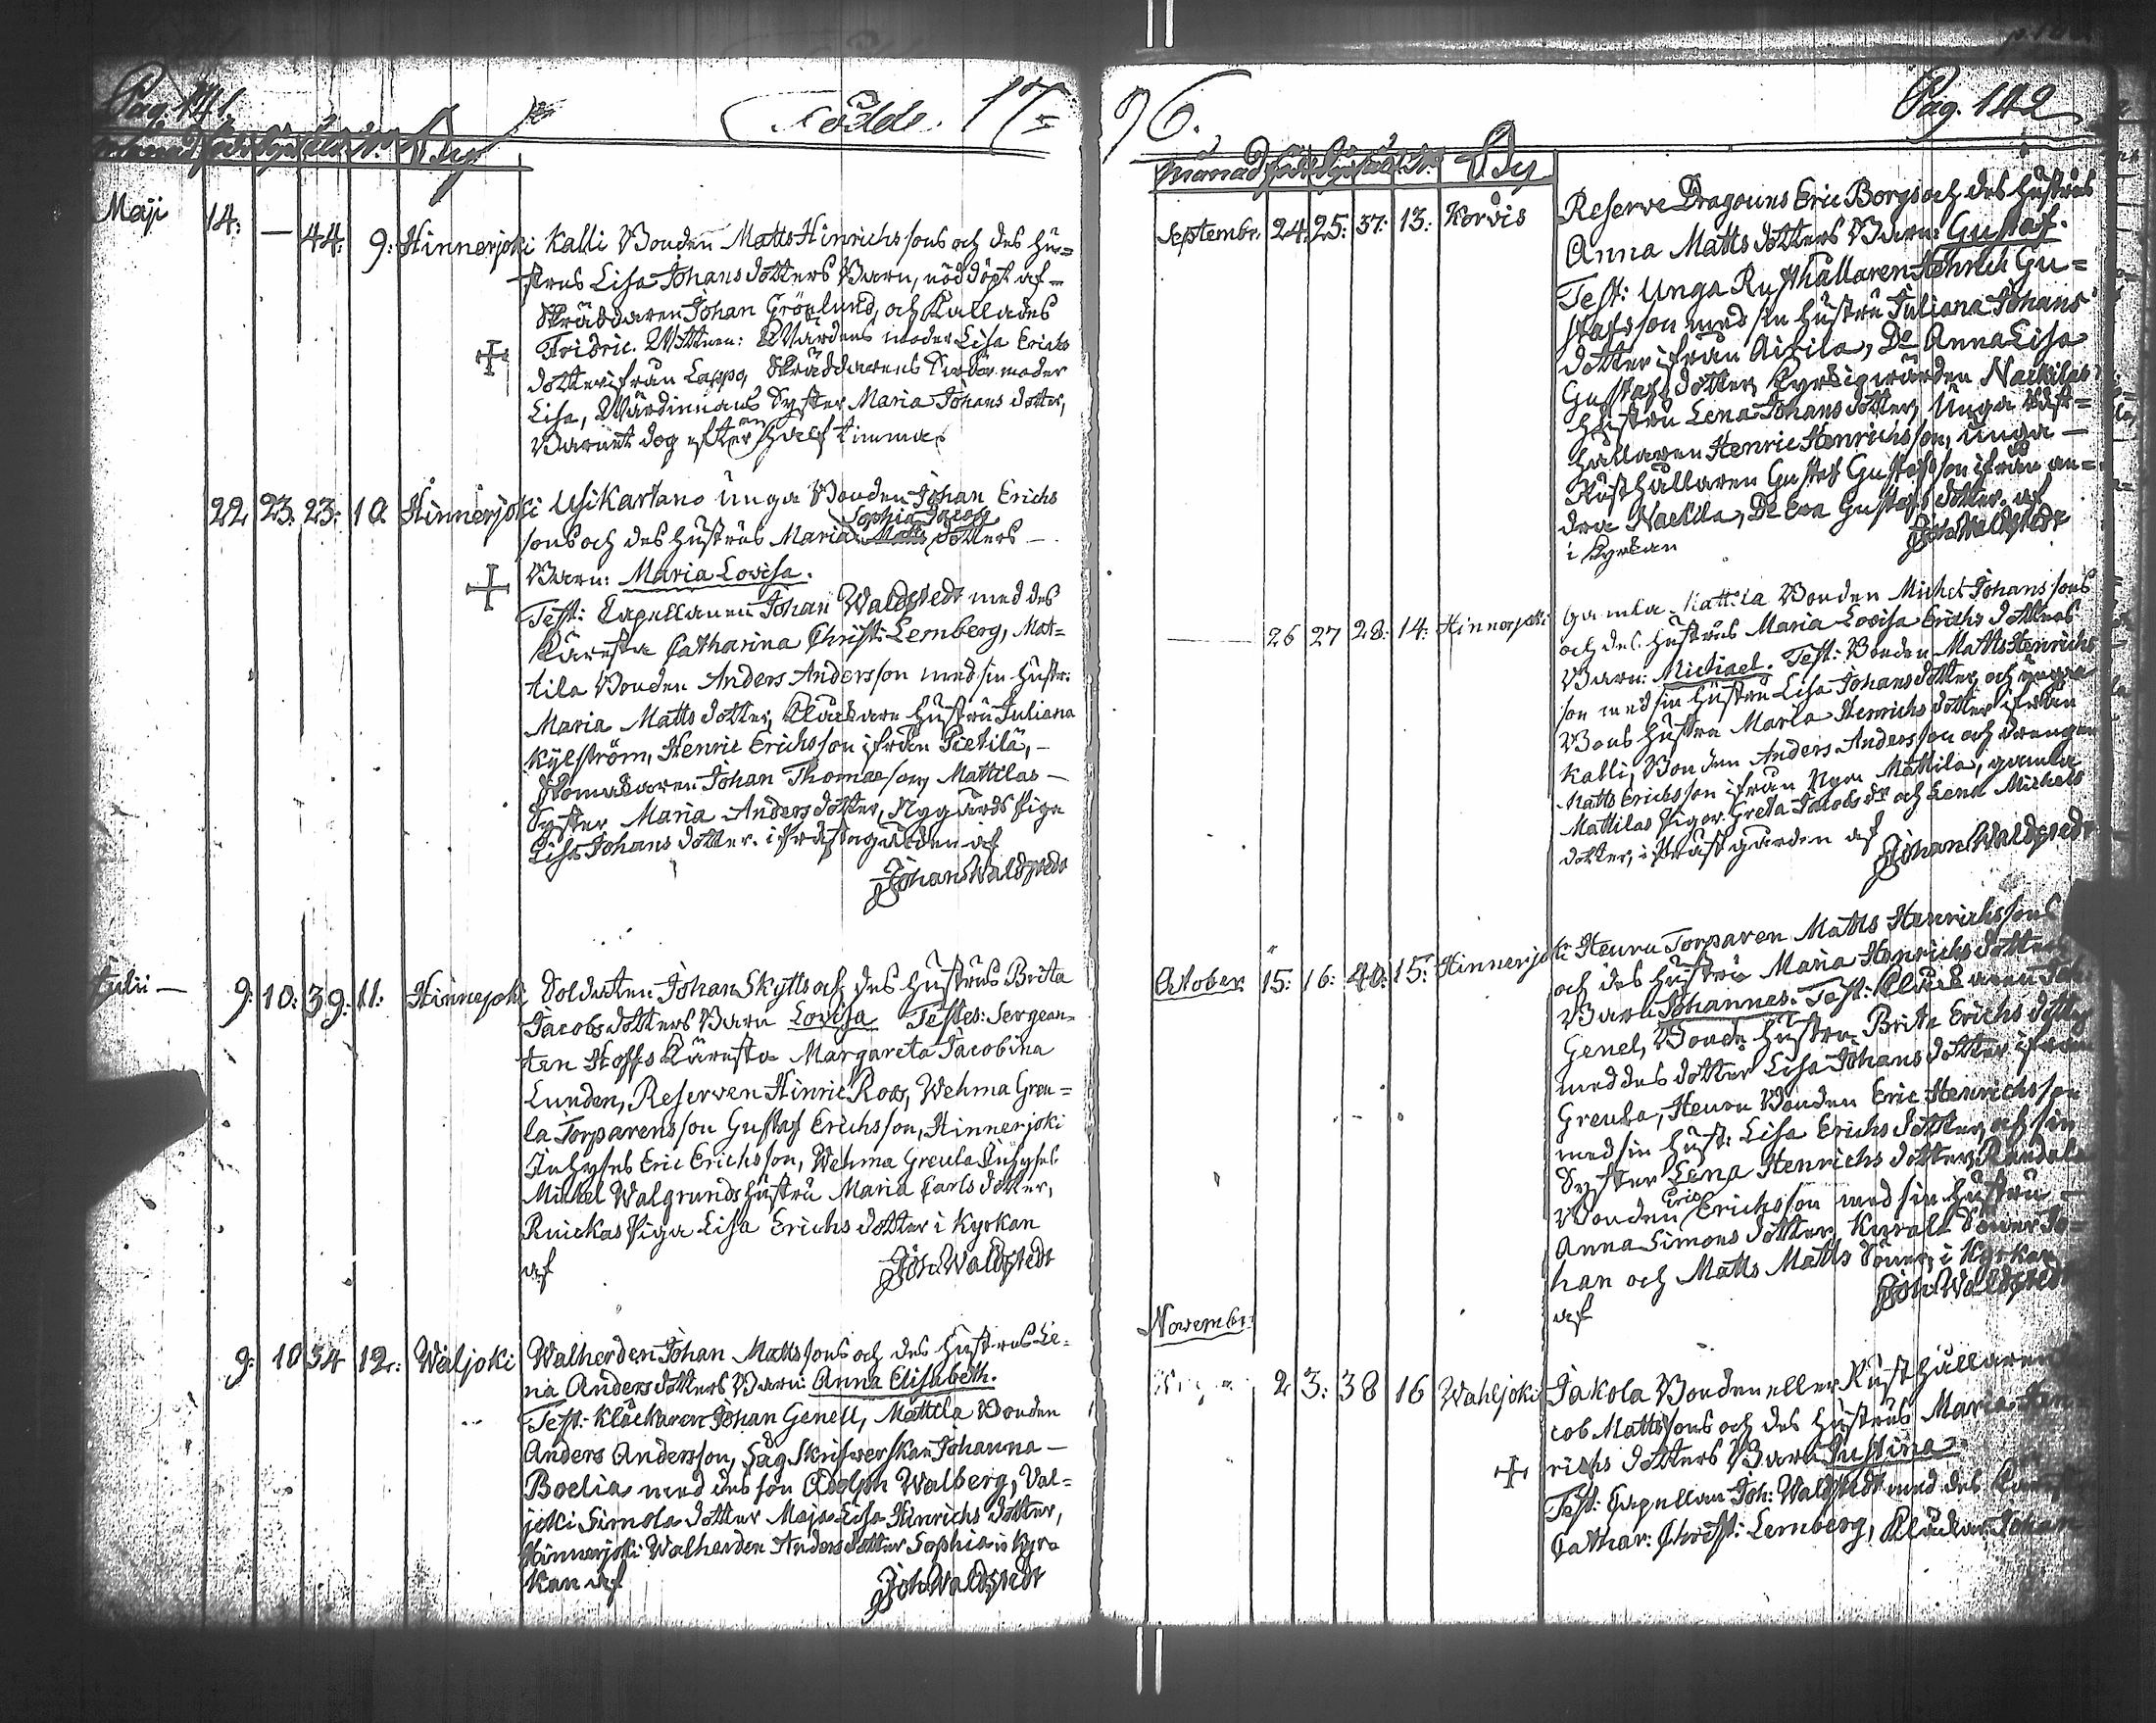 Pag. 141.
Födde. 17
By
Maji 14: — 44: 9: Hinnerjoki Kalli Bonden Matts Hinrichssons och des hu=
strus Lisa Johansdotters Barn, nöddöpt af —
Skräddaren Johan Grönlund, och Kallades
Fridric. Wittnen: Wärdens moder Lisa Erichs
dotter ifrån Lappo, Skräddarens moder
Lisa, Wärdinnans Syster Maria Johans dotter,
Barnet dog efter en half timma
22 23: 23: 10 Hinnerjoki Usikartano Unga Bonden Johan Erichs
Sophia Jacobs
sons och des hustrus Maria Matts dotters —
Barn: Maria Lovisa.
Test: Capellanen Johan Waldstedt med des
Käresta Catharina Christ: Lemberg, Mat=
tila Bonden Anders Andersson med sin hustr:
Maria Matts dotter, Cläckare hustru Juliana
Kylström, Henric Erichsson ifrån Pietilä, —
Skomakaren Johan Thomasson, Mattilas —
Syster Maria Anders dotter, Nygårds Piga
Lisa Johans dotter. i Prästegården af
Johan Waldstedt
Julii — 9: 10: 39: 11: Hinnerjoki Soldaten Johan Skytts och des hustrus Brita
Jacobs dotters Barn Lovisa Testes: Sergean=
ten Hoffs Käresta Margareta Jacobina
Lunden, Reserven Hinric Roos, Wehma Greu=
la Torparens son Gustaf Erichsson, Hinnerjoki
Inhyses Eric Erichsson, Wehma Greula Inhyses
Michel Walgrunds hustru Maria Carls dotter,
Ruickas Piga Lisa Erichs dotter i Kyrkan
af Joh: Waldstedt
9: 10 34 12: Wäljoki Walherden Johan Mattssons och des hustrus Le=
na Anders dotters Barn: Anna Elisabeth.
Test: Kläckaren Johan Genell, Mattila Bonden
Anders Andersson, Såg Skrifwerskan Johanna —
Boelia med des son Adolph Walberg, Val=
joki Simola dotter Maja Lisa Hinrichs dotter,
Hinnerjoki Walherden Anders dotter Sophia i Kyr=
kan af Joh: Waldstedt
96. Pag. 142
Månad By
Septembr. 24. 25: 37: 13: Korvis Reserve Dragouns Eric Borgs och des hustrus
Anna Matts dotters Barn: Gustaf.
Test: Unga Rusthållaren Hinrich Gu=
stafsson med sin hustru Juliana Johans
dotter ifrån Aitila, Do Anna Lisa
Gustafs dotter, Kyrkiowärden Nackilas
hustru Lena Johans dotter, Unga Rust=
hållaren Henric Henrichsson, Unga —
Rusthållaren Gustaf Gustafsson ifrån an=
dra Nackila, Do Eva Gustafs dotter, af
i Kyrkan Joh: Waldstedt
— 26 27 28: 14: Hinnerjoki Gamla Mattila Bonden Michel Johanssons
och des hustrus Maria Lovisa Erichs dotters
Barn: Michael. Test: Bonden Matts Henrichs
son med sin hustru Lisa Johansdotter, och unga
Bons hustru Maria Henrichs dotter ifrån
Kalli, Bonden Anders Andersson och drengen
Matts Erichsson ifrån Nya Mattila, gamla
Mattilas Pigor Greta Jacobs dr och Lena Michels
dotter, i Prästgården af Johan Waldstedt
October 15: 16: 40: 15: Hinnerjoki Heuru Torparen Matts Henrichssons
och des hustru Maria Henrichs dotters
Barn Johannes. Test: Cläckaren
Genel, Bonde hustru Brita Erichs dotter
med des dotter Lisa Johans dotter ifrån
Greula, Heuru Bonden Eric Henrichsson
med sin hust: Lisa Erichs dotter, och sin
Syster Lena Henrichs dotter, Randala
Eric
Bonden Erichsson med sin hustru —
Anna Simons dotter, Kurala Söner Jo=
han och Matts Matts Söner, i Kyrkan
af Joh: Waldstedt
Novembr:
2 3: 38 16 Wahljoki Jakola Bonden eller Rusthållaren
cob Mattssons och des hustrus Maria Hen=
richs dotters Barn Justina.
Test: Capellan Joh: Waldstedt med des
Cathar: Christ: Lemberg, Cläckar: Johan